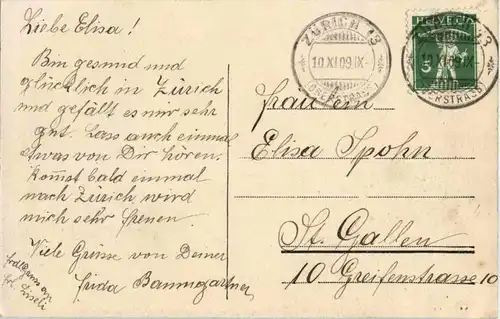 Liebe Elisa!
Bin gesund und
glücklich in Zürich
und gefällt es mir sehr
gut. Lass auch einmal
etwas von Dir hören.
Kommst bald einmal
nach Zürich wird
mich sehr freuen.
Viele Grüsse von Deiner
Frida Baumgartner
ZÜRICH 13
10.XI.09.IX-
OBERSTRASS
HELVETIA
5
13
10.XI.09.IX-
OBERSTRASS
Fräulein
Elisa Spohn
St. Gallen
10 Greifenstrasse 10